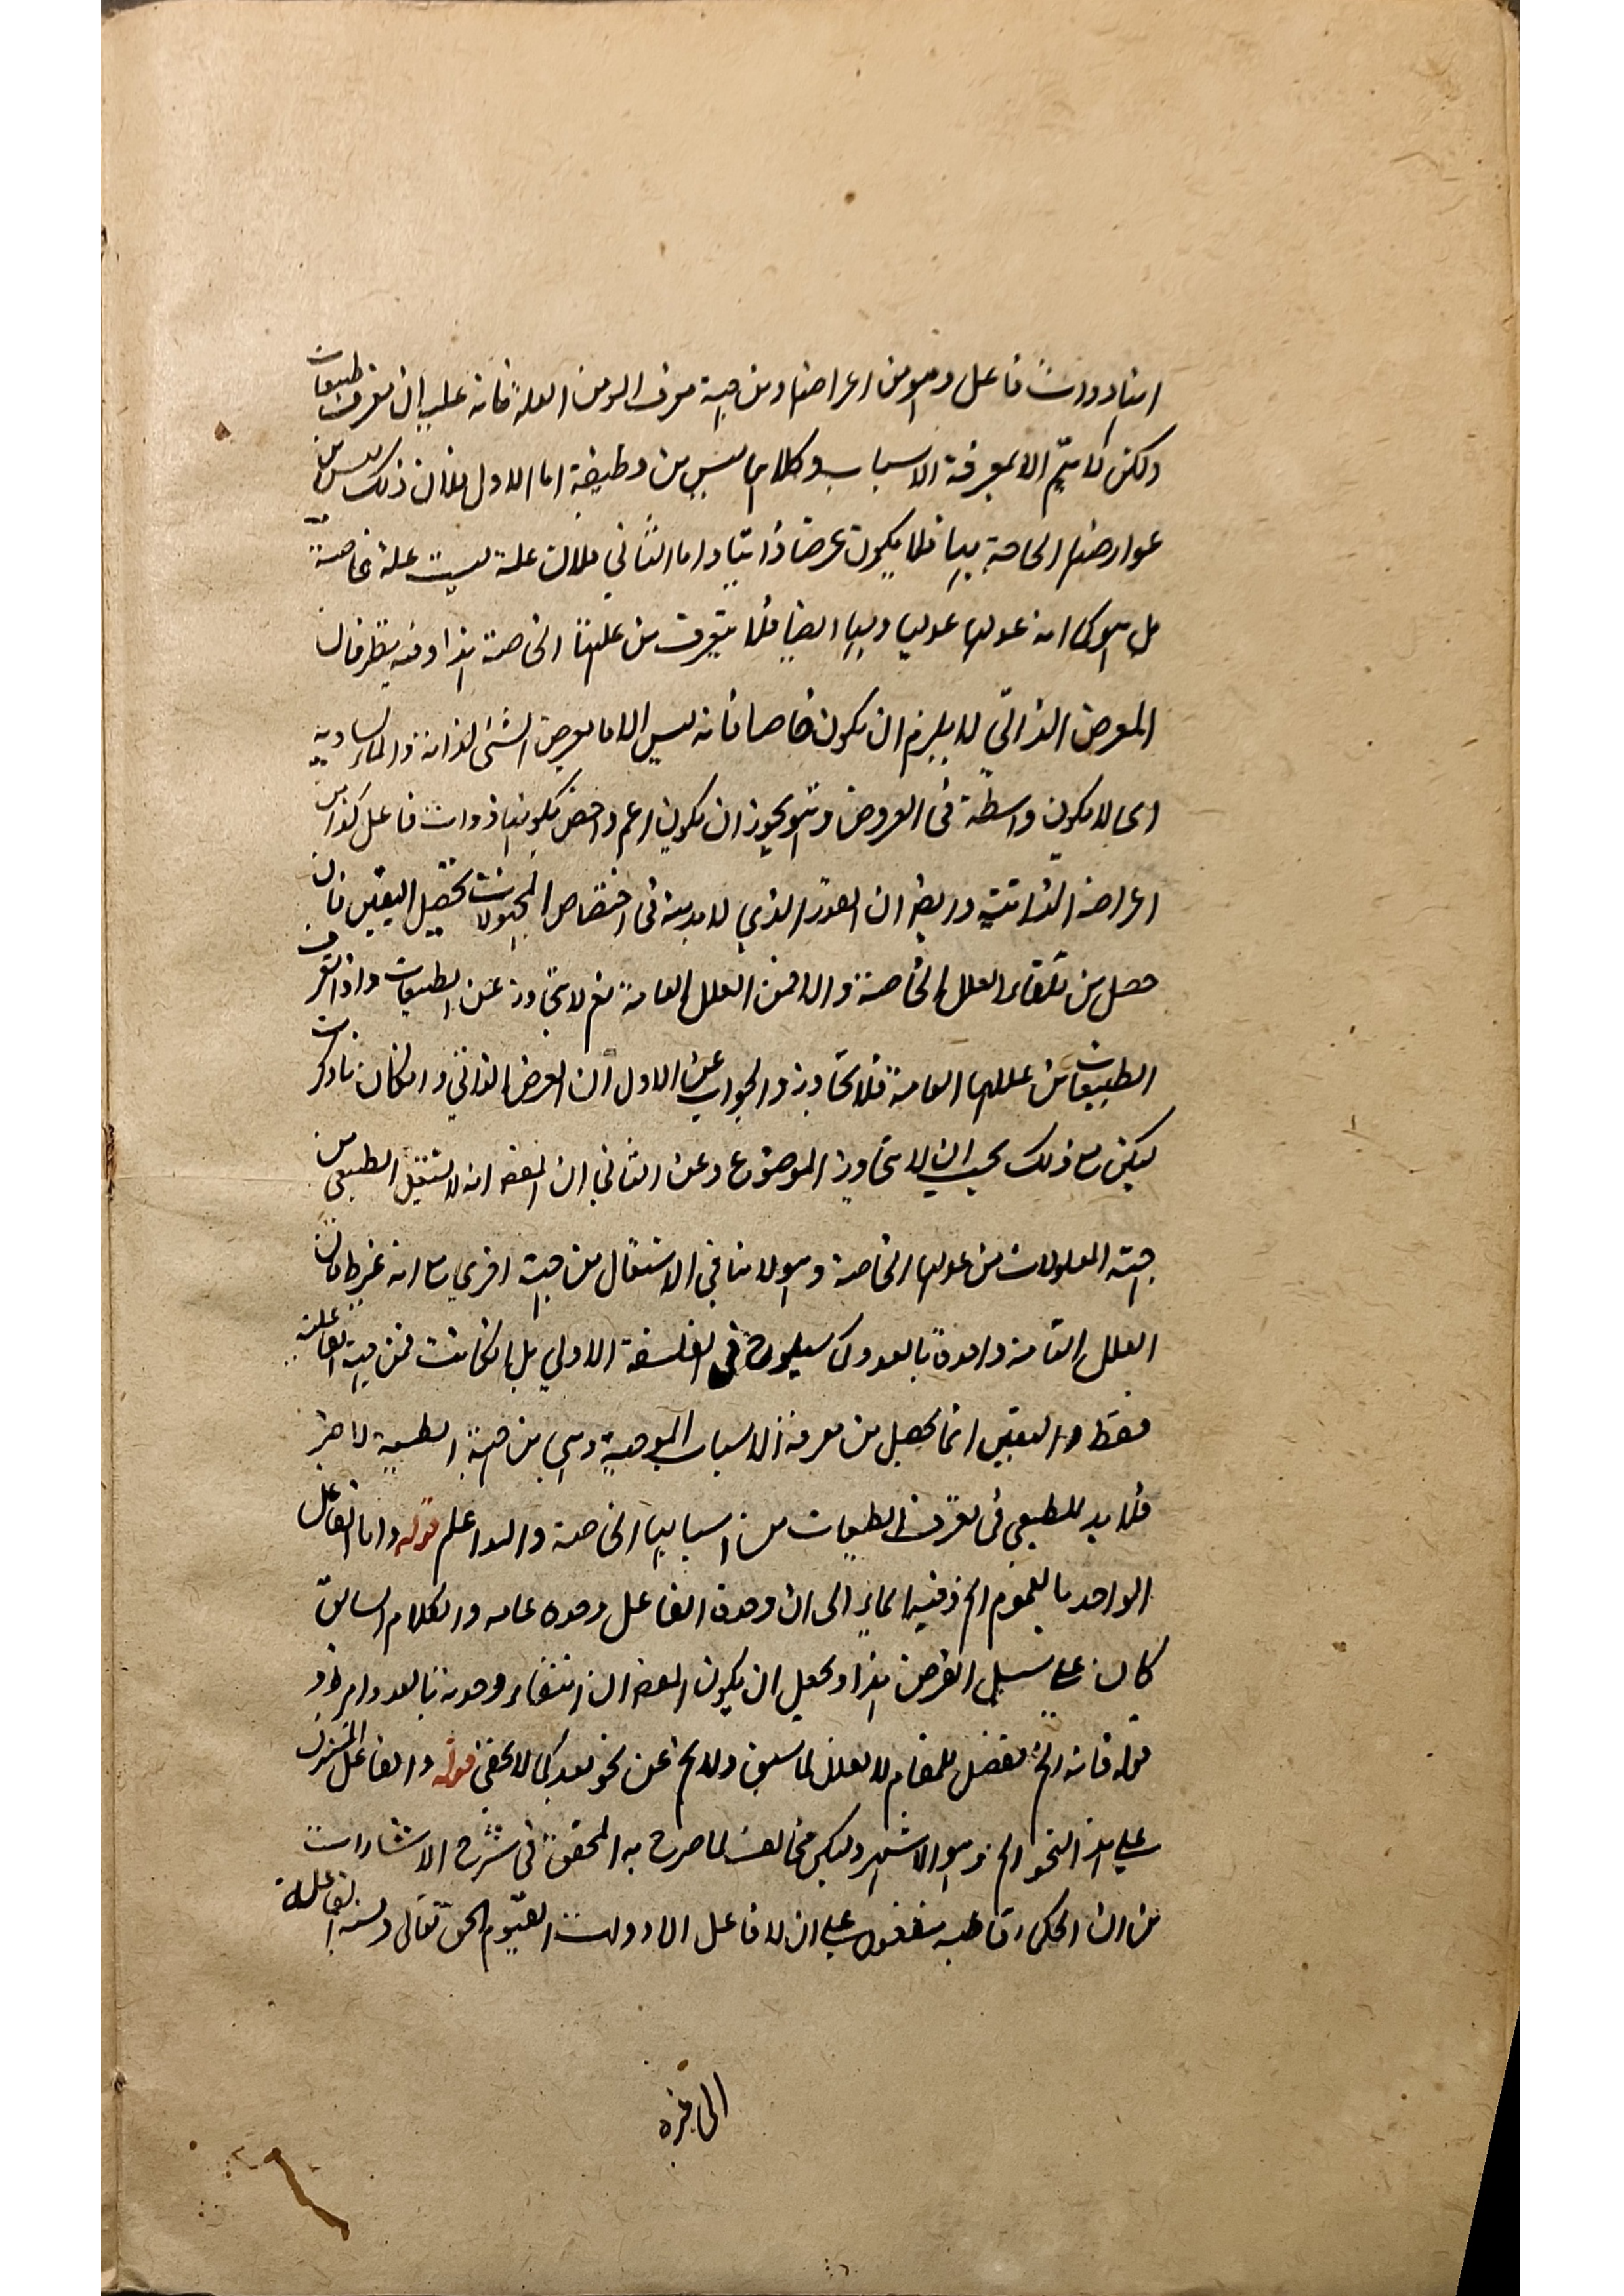 انها ذوات فاعل وهو من اعراضها ومن جهة معرفة العلة فانه عليه ان يعرف طبيعات
ولكن لا يتم الا بمعرفة الاسباب وكلاهما ليس من وظيفة اما الاول فلان ذلك ليس من
عوارضها الخاصة بها فلا يكون عرضا ذاتيا واما الثاني فلان علة ليست علة خاصة
بل هو كما انه علتها ايضا فلا يتعرف من عللها الخاصة هذا وفيه نظر فان
العرض الذاتي لا يلزم ان يكون خاصا فانه ليس الا ما يعرض الشئ لذاته والمساويه
اى لا يكون واسطة فى العروض وهو يجوز ان يكون اعم واخص فكونها ذوات فاعل كذا من
اعراضه الذاتية وايضا ان القدر الذي لا بد منه فى اختصاص المجهولات تحصيل اليقين فان
حصل من تلقاء العلل الخاصة والا فمن العلل العامة نعم لا يتجاوز عن الطبيعات واذا تعرف
الطبيعات من عللها العامة فلا يتجاوز والجواب عن الاول ان العرض الذاتي وان كان ما ذكرت
لكن مع ذلك يجب ان لا يتجاوز الموضوع وعن الثاني ان الغرض انه لا يشتغل الطبيعى من
جهة المعلولات من عللها الخاصة وهو لا ينافي الاشتغال من جهة اخرى مع انه غير
العلل التامة واحدة بالعدد كما سيلوح فى الفلسفة الاولى بل ان كانت فمن جهة الفاعلية
فقط واليقين انما يحصل من معرفة الاسباب الموجبة وهى من جهة الطبيعة لا خير
فلا بد للطبيعى فى تعرف الطبيعات من اسبابها الخاصة والله اعلم قوله واما الفاعل
الواحد بالعموم الخ وفيه ايماء الى ان وحدة الفاعل وحده عامه والكلام السابق
كان على سبيل الفرض هذا ويحتمل ان يكون الغرض ان انتفاء وحدته بالعدد امر
قوله فانه الخ تفصيل للمقام لا تعليل لما سبق ولا يخ عن نحو بعد كما لا يخفى قوله والفاعل المشترك
على هذا النحو الخ وهو الاشهر ولكن مخالف لما صرح به المحقق فى شرح الاشارات
من ان الحكماء قاطبه متفقون على ان لا فاعل الا ذوات القيوم الحق تعالى ونسبة الفاعلية
الى غيره